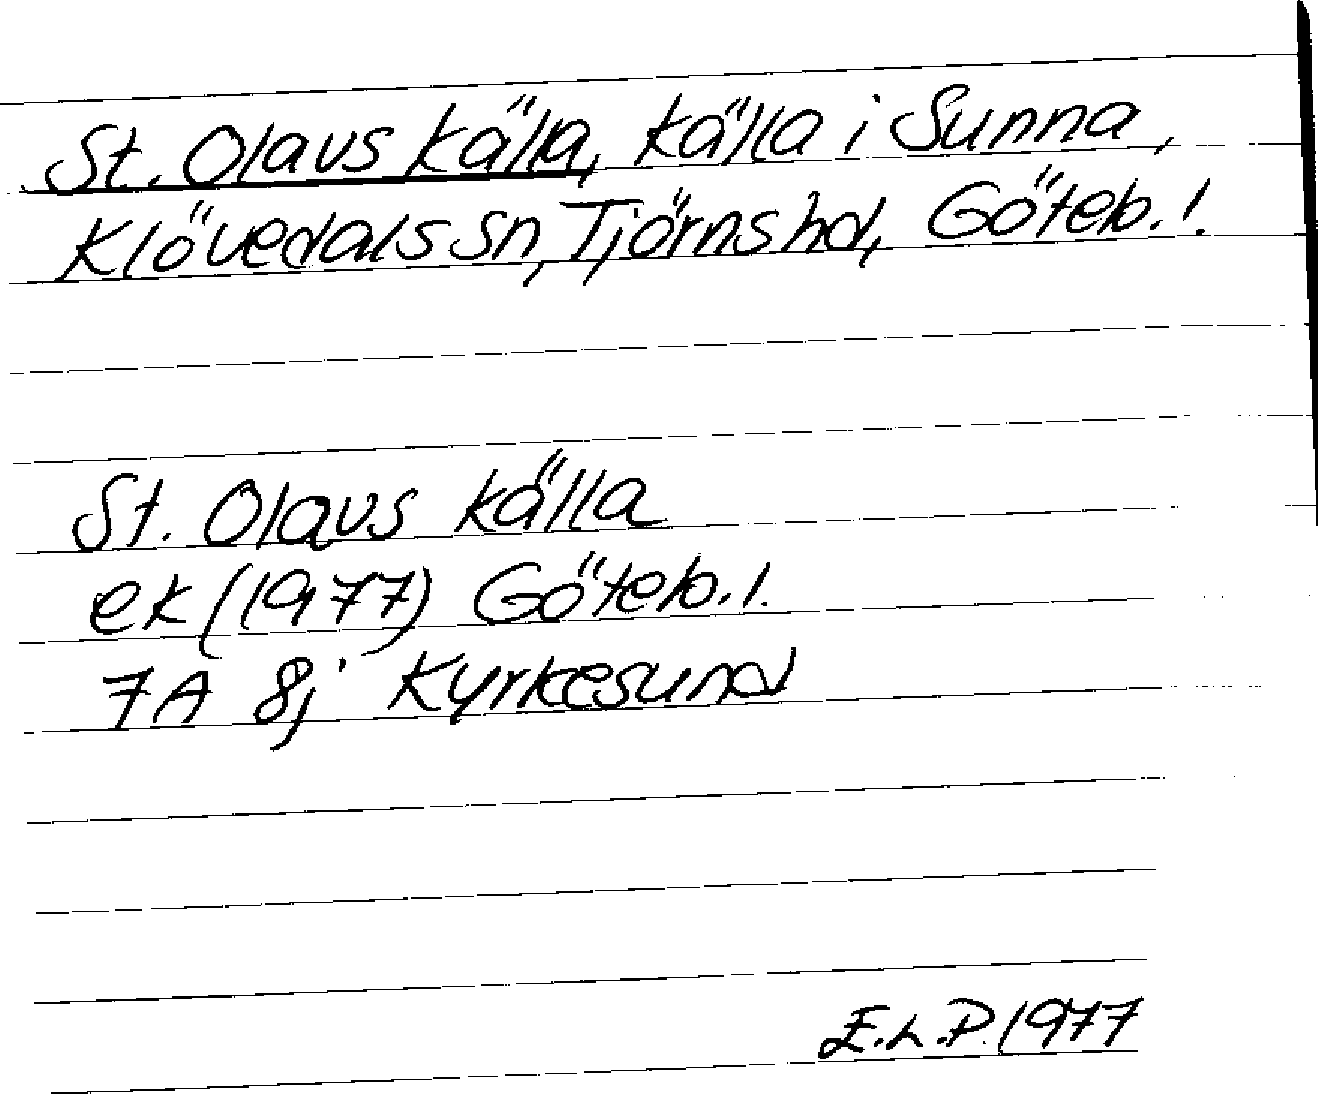 St. Olavs källa, källa i Sunna,
Klövedals sn, Tjörns hd, Göteb. l.
St. Olavs källa
ek (1977) Göteb. l.
7A 8j Kyrkesund
E.L.P. 1977